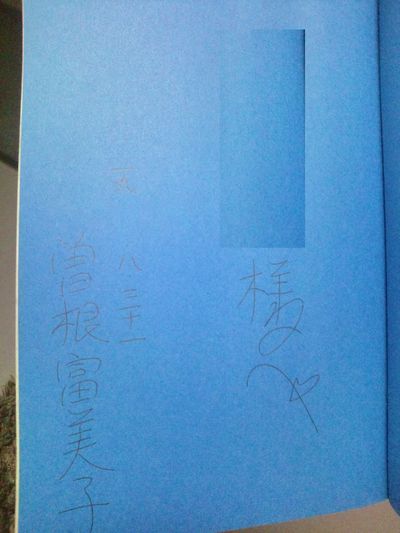 様へ
八 三十一
曽根富美子